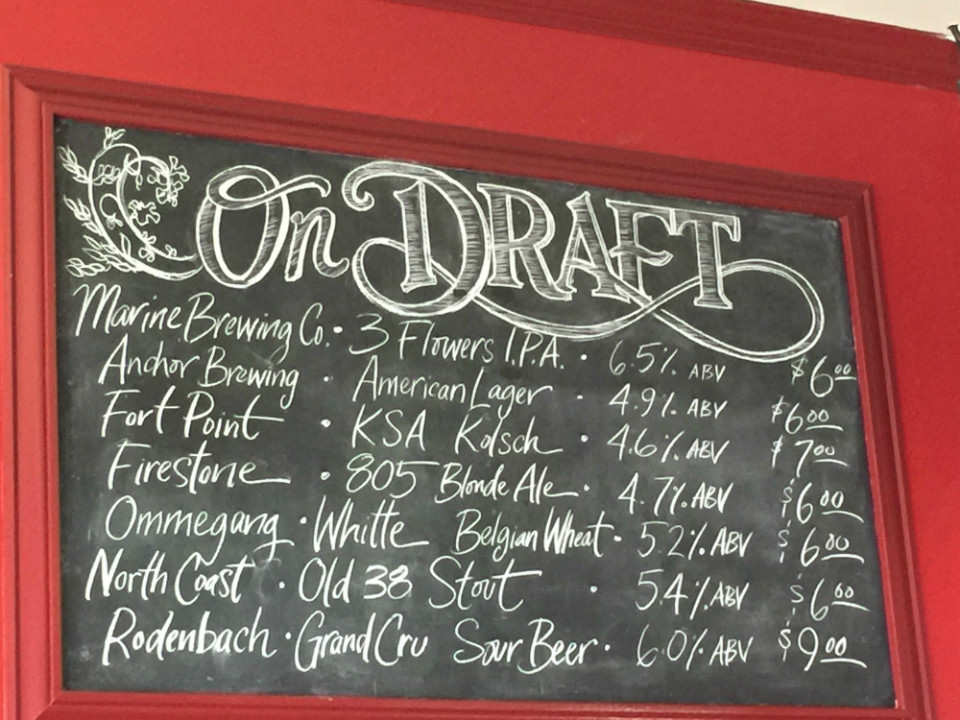 On DRAFT
Marine Brewing Co. • 3 Flowers I.P.A. • 6.5% ABV $6.00
Anchor Brewing • American Lager • 4.9% ABV $6.00
Fort Point • KSA Kolsch • 4.6% ABV $7.00
Firestone • 805 Blonde Ale • 4.7% ABV $6.00
Ommegang • Whitte Belgian Wheat • 5.2% ABV $6.00
North Coast • Old 38 Stout • 5.4% ABV $6.00
Rodenbach • Grand Cru Sour Beer • 6.0% ABV $9.00